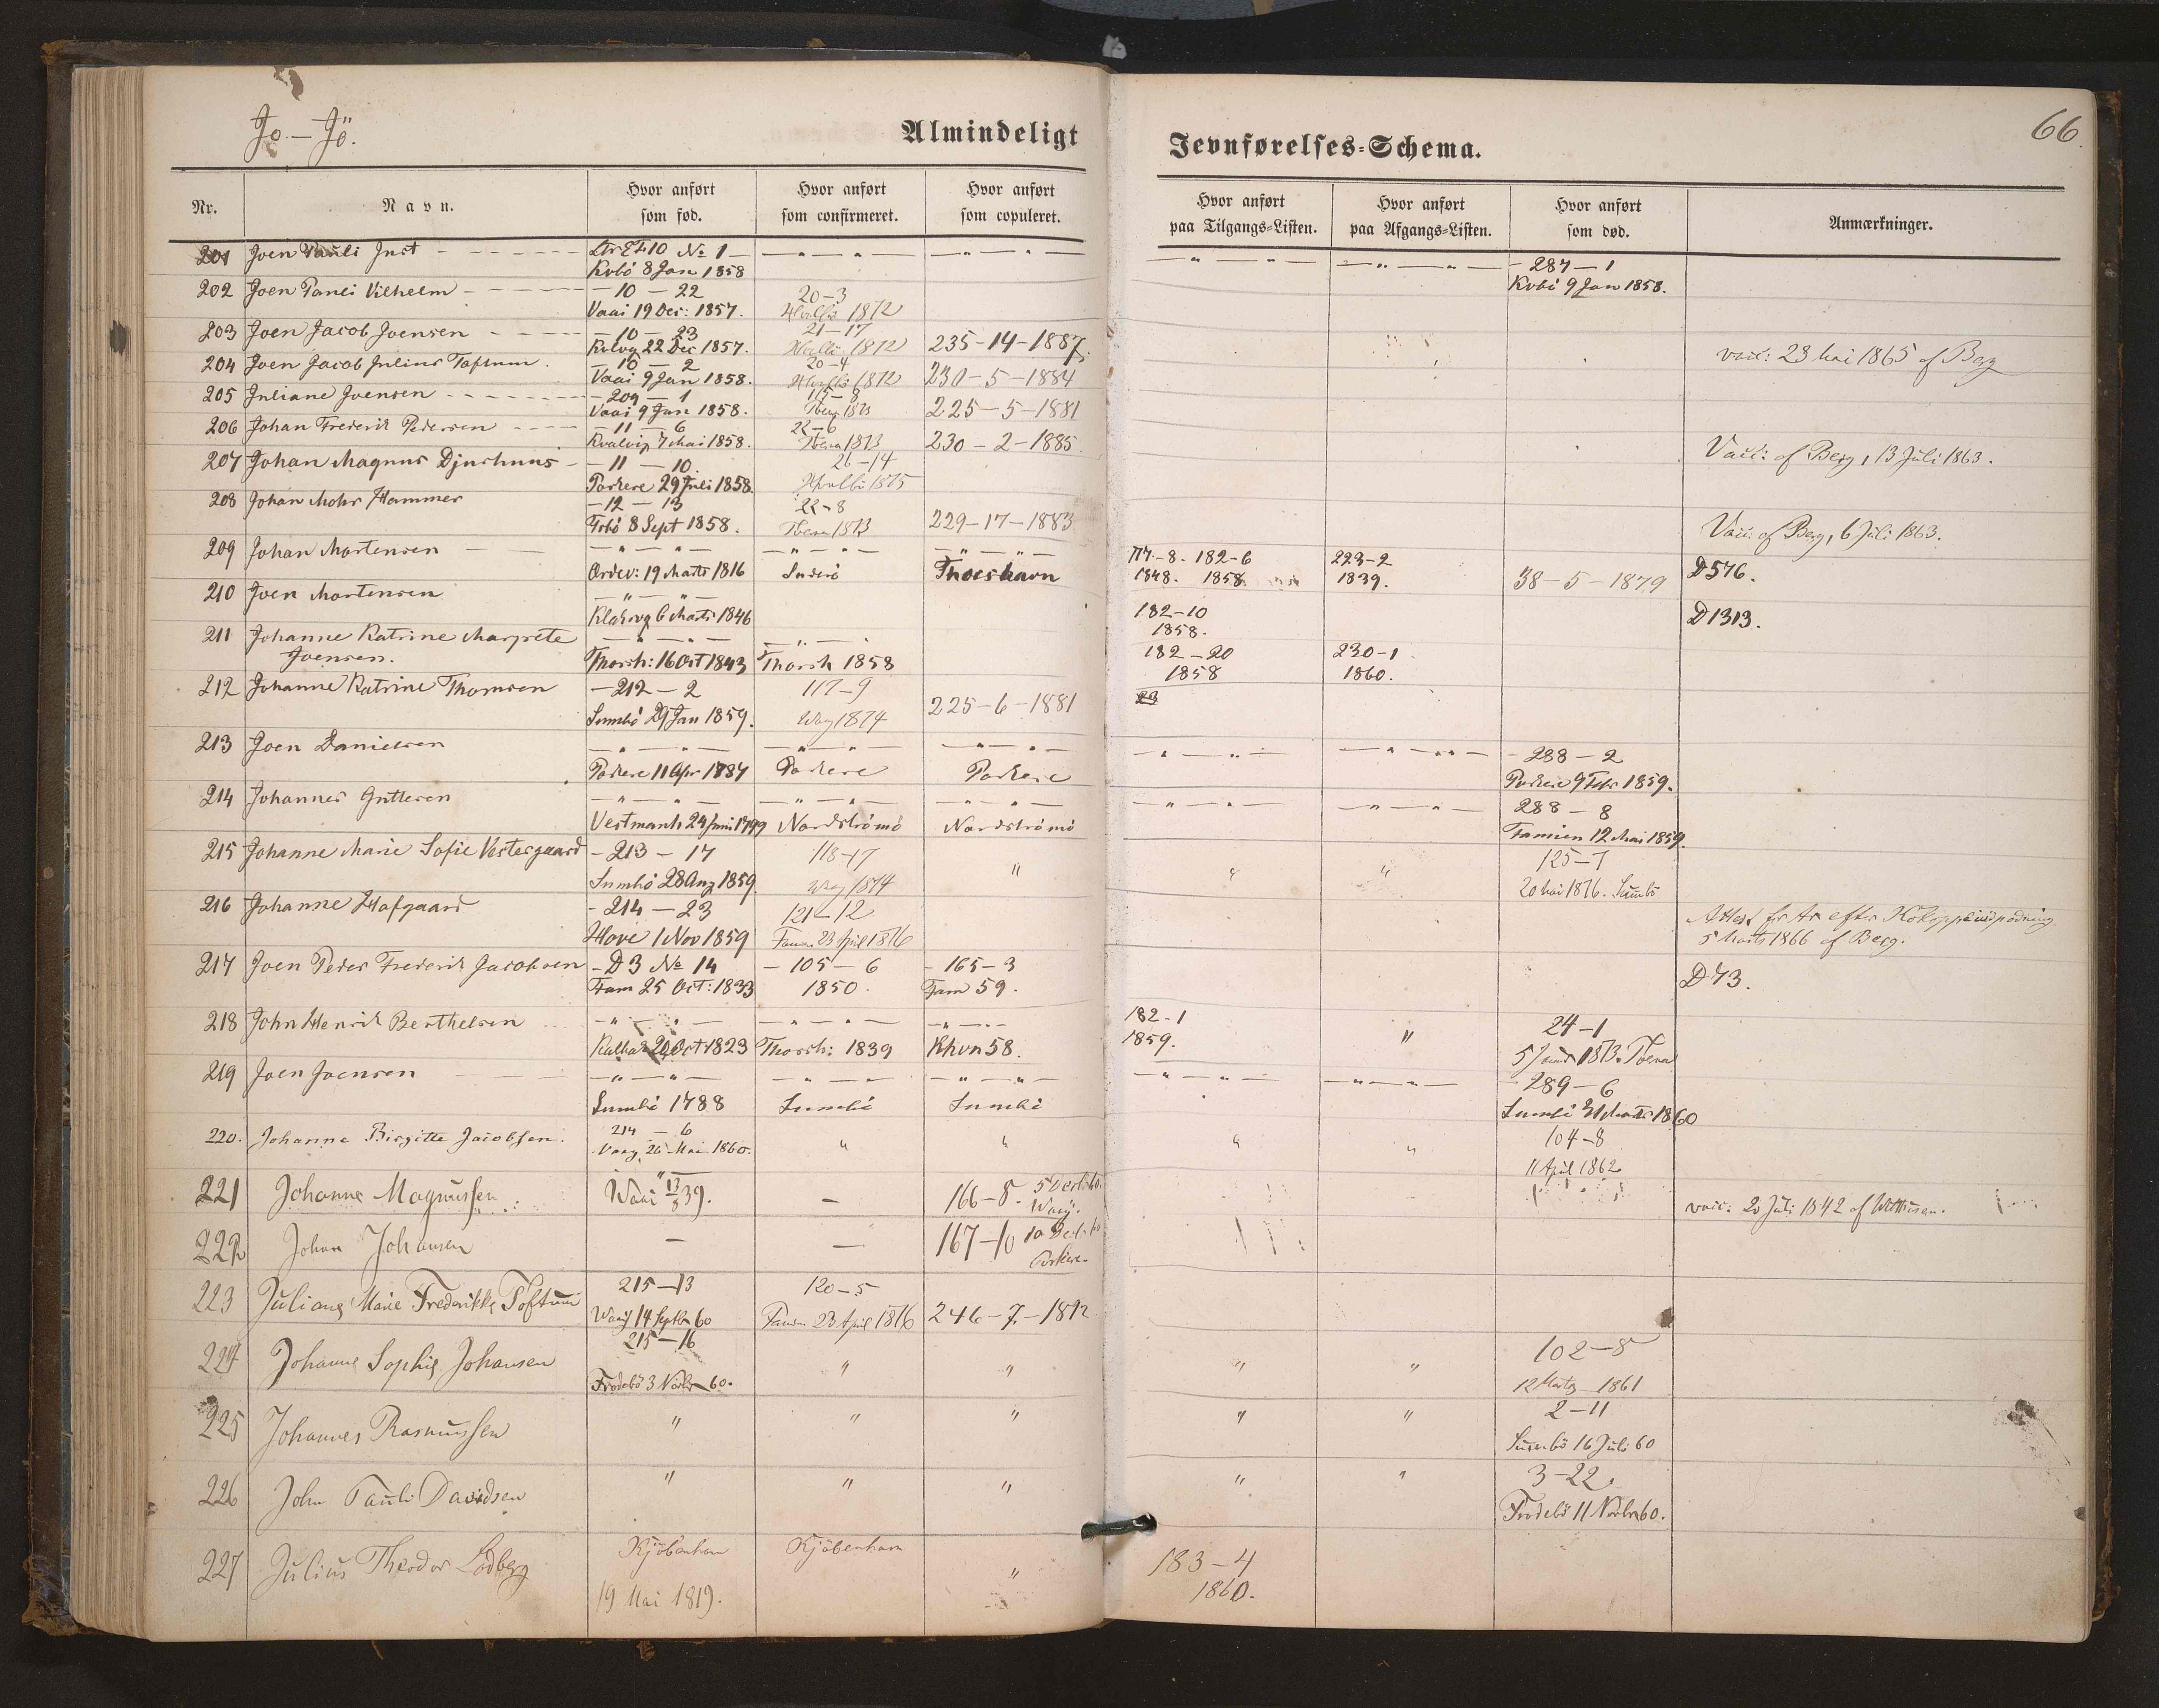 Jo.-Jö.
Almindeligt
Jevnførelses-Schema.
66.
Nr.
Navn.
Hvor anført
som fød.
Hvor anført
som confirmeret.
Hvor anført
som copuleret.
Hvor anført
paa Tilgangs-Listen.
Hvor anført
paa Afgangs-Listen.
Hvor anført
som død.
Anmærkninger.
201 Joen Pauli Just 10 No 1 287-1
Kvbö 8 Jan 1858 Kvbö 9 Jan 1858.
202 Joen Pauli Vilhelm - 10 - 22 20-3
Vaai 19 Dec: 1857. Hvalbö 1872
203 Joen Jacob Joensen - 10 - 23 21-17
Kvlvg 22 Dec 1857. 1872 235-14-1887.
204 Joen Jacob Julius Toftum. - 10 - 2 20-4 vacc: 23 Mai 1865 af Berg
Vaai 9 Jan 1858. Hvalbö 1872 230-5-1884
205 Juliane Joensen - 209 - 1 115-8
Vaai 9 Jan 1858. 1873 225-5-1881
206 Johan Frederik Pedersen - 11 - 6 22-6
Kvalvig 7 Mai 1858. 1873 230-2-1885.
207 Johan Magnus Djurhuus - 11 - 10. 26-14 Vacc: af Berg, 13 Juli 1863.
Porkere 29 Juli 1858. Hvalbö 1875
208 Johan Mohr Hammer - 12 - 13 22-8
Frbö 8 Sept 1858. 1873 229-17-1883 Vacc: af Berg, 6 Juli 1863.
209 Johan Mortensen - " - " - - " - " - - " - " - 177-8. 182-6 223-2
Ördev: 19 Marts 1816 Suderö Thorshavn 1848. 1858 1839. 38-5-1879 D 576.
210 Joen Mortensen - " - " - 182-10 D 1313.
Klaksvg 6 Marts 1846 1858.
211 Johanne Katrine Margrete - " - " - 182-20 230-1
Joensen. Thorsh: 16 Oct 1843 Thorsh 1858 1858 1860.
212 Johanne Katrine Thomsen - 212 - 2 117-9
Sumbö 29 Jan 1859. Waag 1874 225-6-1881
213 Joen Danielsen - " - " - - " - " - - " - " - 288-2
Porkere 11 Apr 1787 Porkere Porkere Porkere 9 Febr 1859.
214 Johannes Guttesen - " - " - - " - " - - " - " - 288-8
Vestmanh 24 Juni 1799 Nordströmö Nordströmö Famien 12 Mai 1859.
215 Johanne Marie Sofie Vestergaard - 213 - 17 118-17 " " " 125-7
Sumbö 28 Aug 1859. Waag 1874 20 Mai 1876. Sumbö
216 Johanne Hofgaard - 214 - 23 121-12 Attest for Ar efter Kokoppeindpodning
Hove 1 Nov 1859 Famien 23 April 1876 5 Marts 1866 af Berg.
217 Joen Peder Frederik Jacobsen - D 3 No 14 - 105 - 6 - 165-3 D 73.
Fam 25 Oct: 1833 1850. Fam 59.
218 John Henrik Berthelsen - " - " - - " - " - - " - " - 182-1 " 24-1
20 Oct 1823 Thorsh: 1839 Khvn 58. 1859. 1873.
219 Joen Joensen - " - " - - " - " - - " - " - 289-6
Sumbö 1788 Sumbö Sumbö Sumbö 31 Marts 1860
220. Johanne Birgitte Jacobsen. 214 - 6 " " " " 104-8
Vaag, 26 Mai 1860. 11 April 1862
221 Johanne Magnussen Waai 13/8 39. - 166-8. 5
Waag. vacc: 20 Juli 1842 af
222 Johan Johansen - - 167-10 10
Porkere.
223 Juliane Marie Frederikke Toftum 215-13 120-5
Waaij 14 Septbr 60 Famien 23 April 1876 246-7-1892
224 Johanne Sophie Johansen 215-16 " " " " 102-8
Frodebö 3 Novbr 60. 12 Marts 1861
225 Johannes Rasmussen " " " " " 2-11
Sumbö 16 Juli 60
226 John Pauli Davidsen " " " " " 3-22.
Frodebö 11 Novbr 60.
227 Julius Theodor Lodberg Kjöbenhavn Kjöbenhavn " 183-4
19 Mai 1819. 1860.